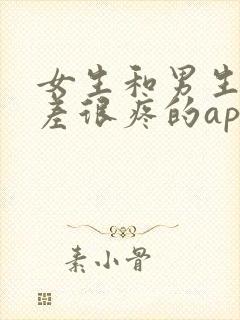 女生和男生
差很疼的ap
素小骨